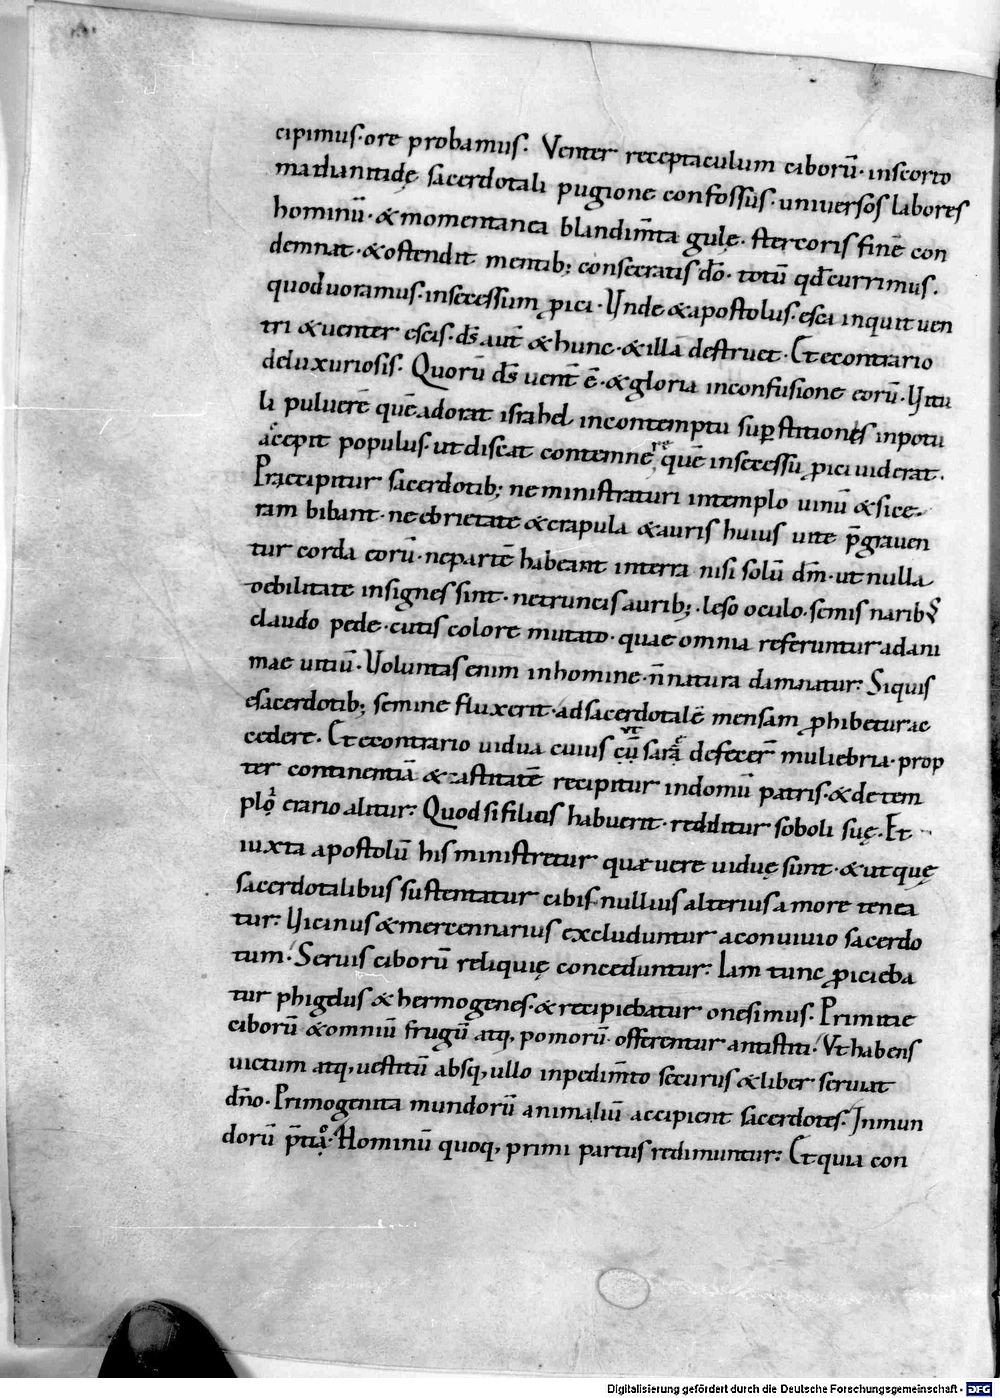 cipimus· ore probamus. Venter receptaculum ciborū· inscorto
madianitidę sacerdotali pugione confossus· universos labores
hominū· & momentanea blandim̄ta gulę· stercoris fine con
demnat· & ostendit mentib; consecratis dō· totū qđ currimus.
quod uoramus· insecessum ꝓici· Unde & apostolus· esci inquit uen
tri & uenter escis· ds̄ aut̄ & hunc· & illā destruet· Et econtrario
deluxuriosis· Quorū ds̄ uent̄ ē· & gloria inconfusione eorū· Uitu
li puluerē quē adorat israhel incontemptu suꝑstitiones inpotu
accepit populus· ut discat contemnere quē insecessu ꝓici uiderat.
Pręcipitur sacerdotib; ne ministraturi intemplo uinū & sice
ram bibant· ne ebrietate & crapula & auris huius uite p̄grauen
tur corda eorū· ne partē habeant interra nisi solū dm̄· ut nulla
debilitate insignes sint· netruncis aurib;· leso oculo· semis narib;
claudo pede· cutis colore mutato· quae omnia referuntur adani
mae uitiū· Voluntas enim inhomine· n̄ natura damnatur: Siquis
esacerdotib; semine fluxerit· ad sacerdotalē mensam ꝓhibetur ac
cedere· Et econtrario uidua cuius cū ut sarę defecer̄ muliebria· prop
ter continentiā & castitatē recipitur indomū patris· & de tem
plo erario alitur: Quod si filios habuerit· redditur soboli suę· Et
iuxta apostolū his ministretur quæ uere uiduę sunt· & ut quę
sacerdotalibus sustentatur cibis nullius alterius amore tenea
tur: Uicinus & mercennarius excluduntur aconuiuio sacerdo
tum· Seruis ciborū reliquię conceduntur: Iam tunc ꝓicieba
tur phigelus & hermogenes· & recipiebatur onesimus. Primitie
ciborū & omniū frugū atq, pomorū offerentur antistiti· Vt habens
uictum atq, uestitū absq, ullo inpedim̄to securus & liber seruiat
dn̄o· Primogenita mundorū animaliū accipient sacerdotes. Inmun
dorū p̄tiā: Hominū quoq, primi partus redimuntur: Et quia con
Digitalisierung gefördert durch die Deutsche Forschungsgemeinschaft - DFG